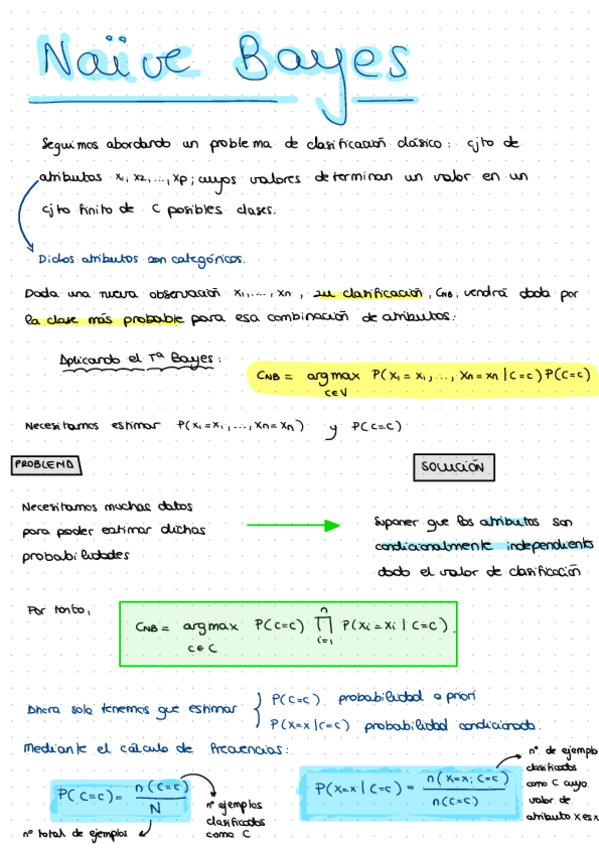 Naïve Bayes
Seguimos abordando un problema de clasificación clásico: cjto de
atributos x₁, x₂, ..., xp; cuyos valores determinan un valor en un
cjto finito de C posibles clases.
Dichos atributos son categóricos.
Dada una nueva observación x₁, ..., xn, su clasificación, CNB, vendrá dada por
la clase más probable para esa combinación de atributos:
Aplicando el Tª Bayes:
CNB = argmax P(X₁ = x₁, ..., Xn = xn | C=c) P(C=c)
c∈V
Necesitamos estimar P(X₁=x₁, ..., Xn=xn) y P(C=c)
PROBLEMA
SOLUCIÓN
Necesitamos muchos datos
para poder estimar dichas
probabilidades
Suponer que los atributos son
condicionalmente independients
dado el valor de clasificación
Por tanto,
CNB = argmax P(C=c) ∏ P(Xi = xi | C=c).
n
i=1
c∈C
Ahora solo tenemos que estimar { P(C=c) probabilidad a priori
P(X=x | C=c) probabilidad condicionada.
Mediante el cálculo de frecuencias:
P(C=c) = n(C=c) / N
nº ejemplos
clasificados
como C
nº total de ejemplos
P(X=x | C=c) = n(X=x; C=c) / n(C=c)
nº de ejemplo
clasificados
como C cuyo
valor de
atributo X es x